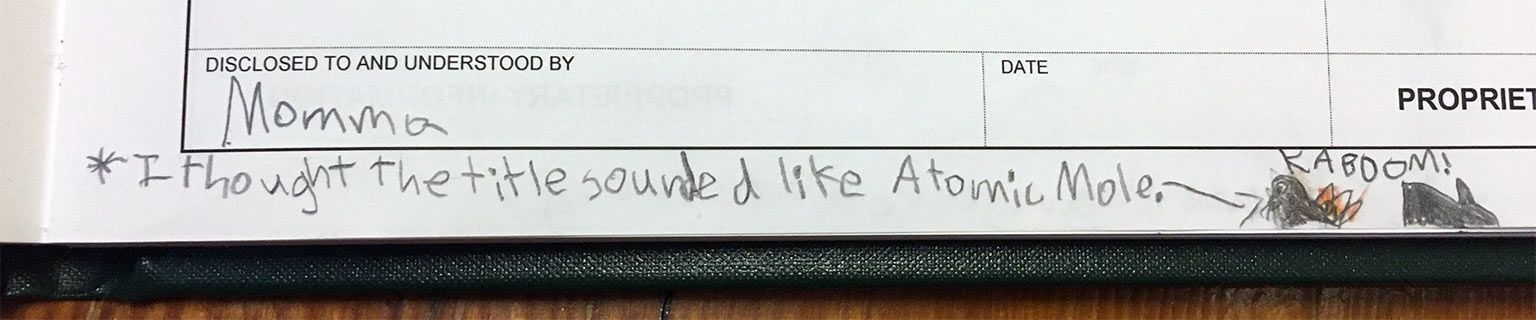 DISCLOSED TO AND UNDERSTOOD BY
DATE
Momma
PROPRIET
* I thought the title sounded like Atomic Mole.
KABOOM!